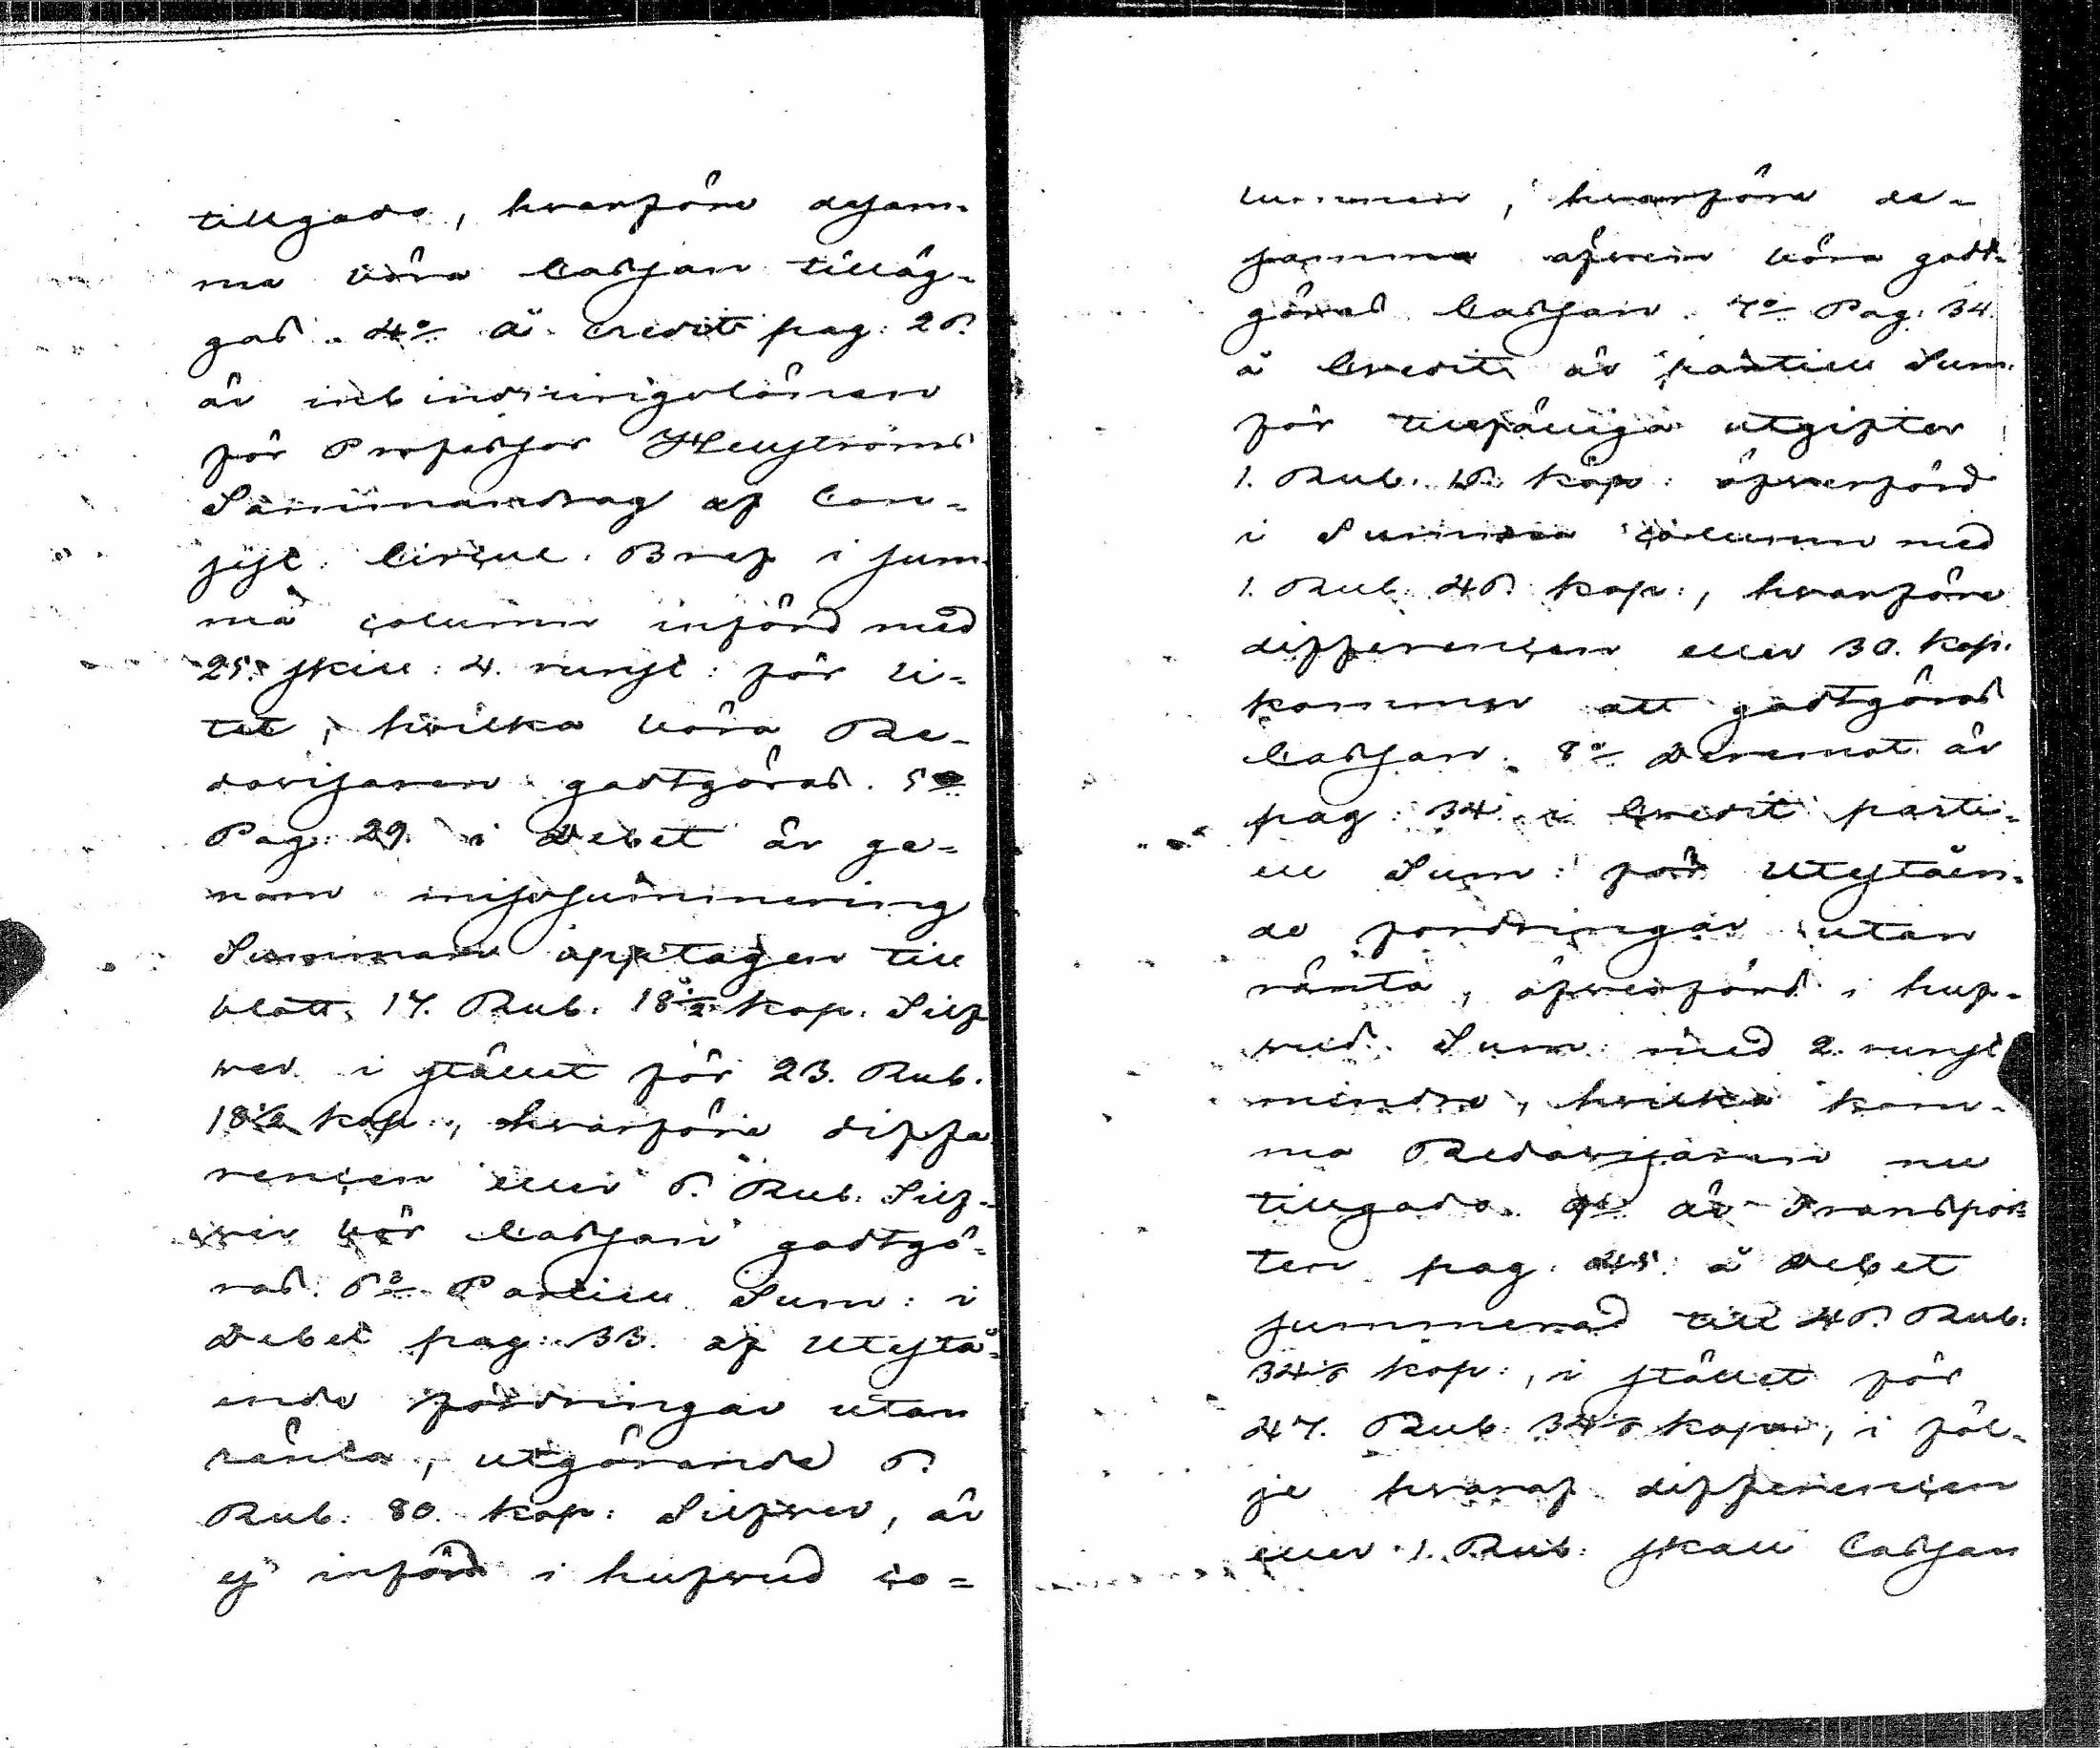 tillgodo, hvarföre desam-
ma böra Cassan tilläg-
gas. 4o å Credit pag: 26.
är inbindningslönen
för Professor Hellströms
Sammandrag af Con-
sist. Circul. Bref i sum-
ma column införd med
25. skill: 4. runst: för li-
tet, hvilka böra Re-
dovisaren godtgöras. 5o
Pag: 29. i Debet är ge-
nom missummering
Summan upptagen till
blott 17. Rub. 18 1/2 kop. Silf
wer i stället för 23. Rub.
18 1/2 kop:, hvarföre diffe
rencen eller 6. Rub: Silf-
wer bör Cassan godtgö-
ras. 6o Partiell Sum: i
Debet pag: 33. af Utestå-
ende fordringar utan
ränta, utgörande 6.
Rub. 80. kop: Silfwer, är
ej införd i hufwud co-
lumnen, hvarföre de-
samma äfwen böra godt-
göras Cassan. 7o Pag: 34.
å Credit är partiell Sum.
för tillfälliga utgifter
1. Rub. 16. kop: öfwerförd
i Summa column med
1. Rub. 46. kop:, hvarföre
differencen eller 30. kop.
kommer att godtgöras
Cassan. 8o Deremot är
pag: 34. i Credit parti-
ell Sum: för Uteståen-
de fordringar utan
ränta, öfwerförd i huf-
wud. Sum: med 2. runst
mindre, hvilka kom-
ma Redovisaren nu
tillgodo. 9o är Transpor-
ten pag. 45. å Debet
summerad till 46. Rub:
34 kop:, i stället för
47. Rub: 34 kop:, i föl-
je hvaraf differencen
eller 1. Rub: skall Cassan